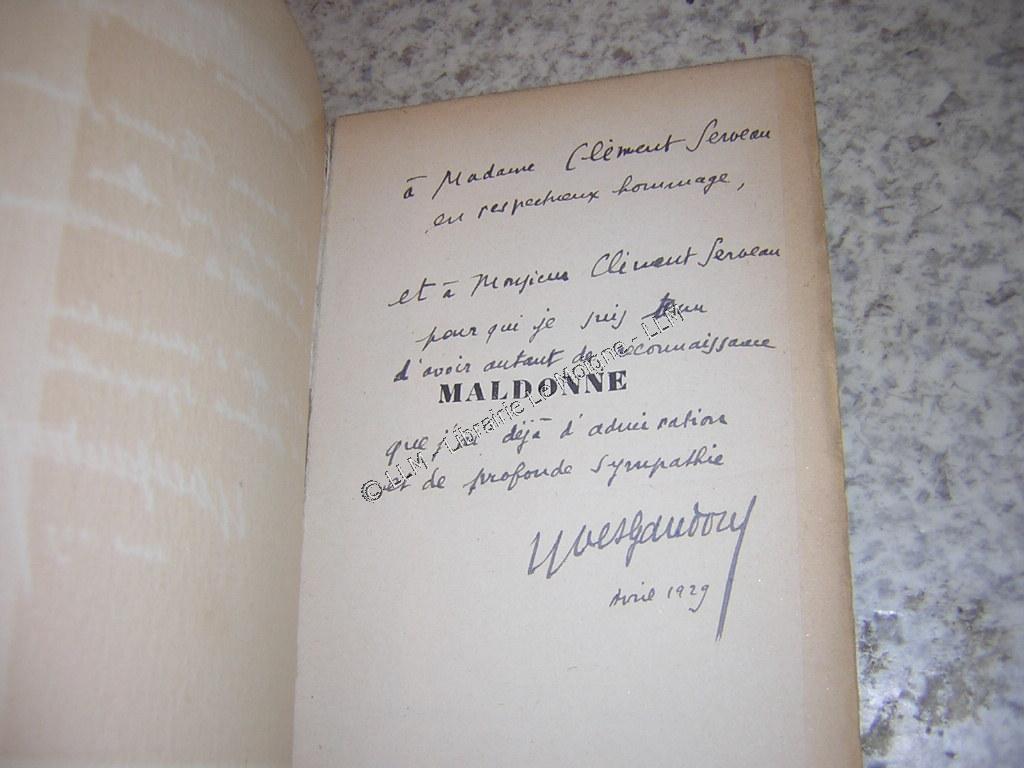 à Madame Clément Serveau
en respectueux hommage,
et à Monsieur Clément Serveau
pour qui je suis
d'avoir autant de reconnaissance
MALDONNE
que j'ai déjà d'admiration
et de profonde sympathie
Yves Gandon
Avril 1929
© LLM - Librairie Le Moigne - LLM